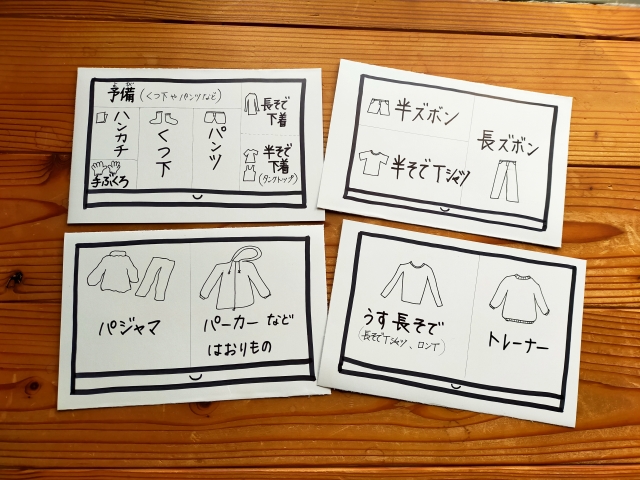 予備(くつ下やパンツなど)
よび
ハンカチ
手ぶくろ
くつ下
パンツ
長そで
下着
半そで
下着
(タンクトップ)
半ズボン
半そでTシャツ
長ズボン
パジャマ
パーカーなど
はおりもの
うす長そで
(長そでTシャツ、ロンT)
トレーナー